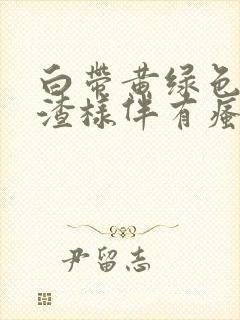 白带黄绿色
渣样伴有瘙
尹留志